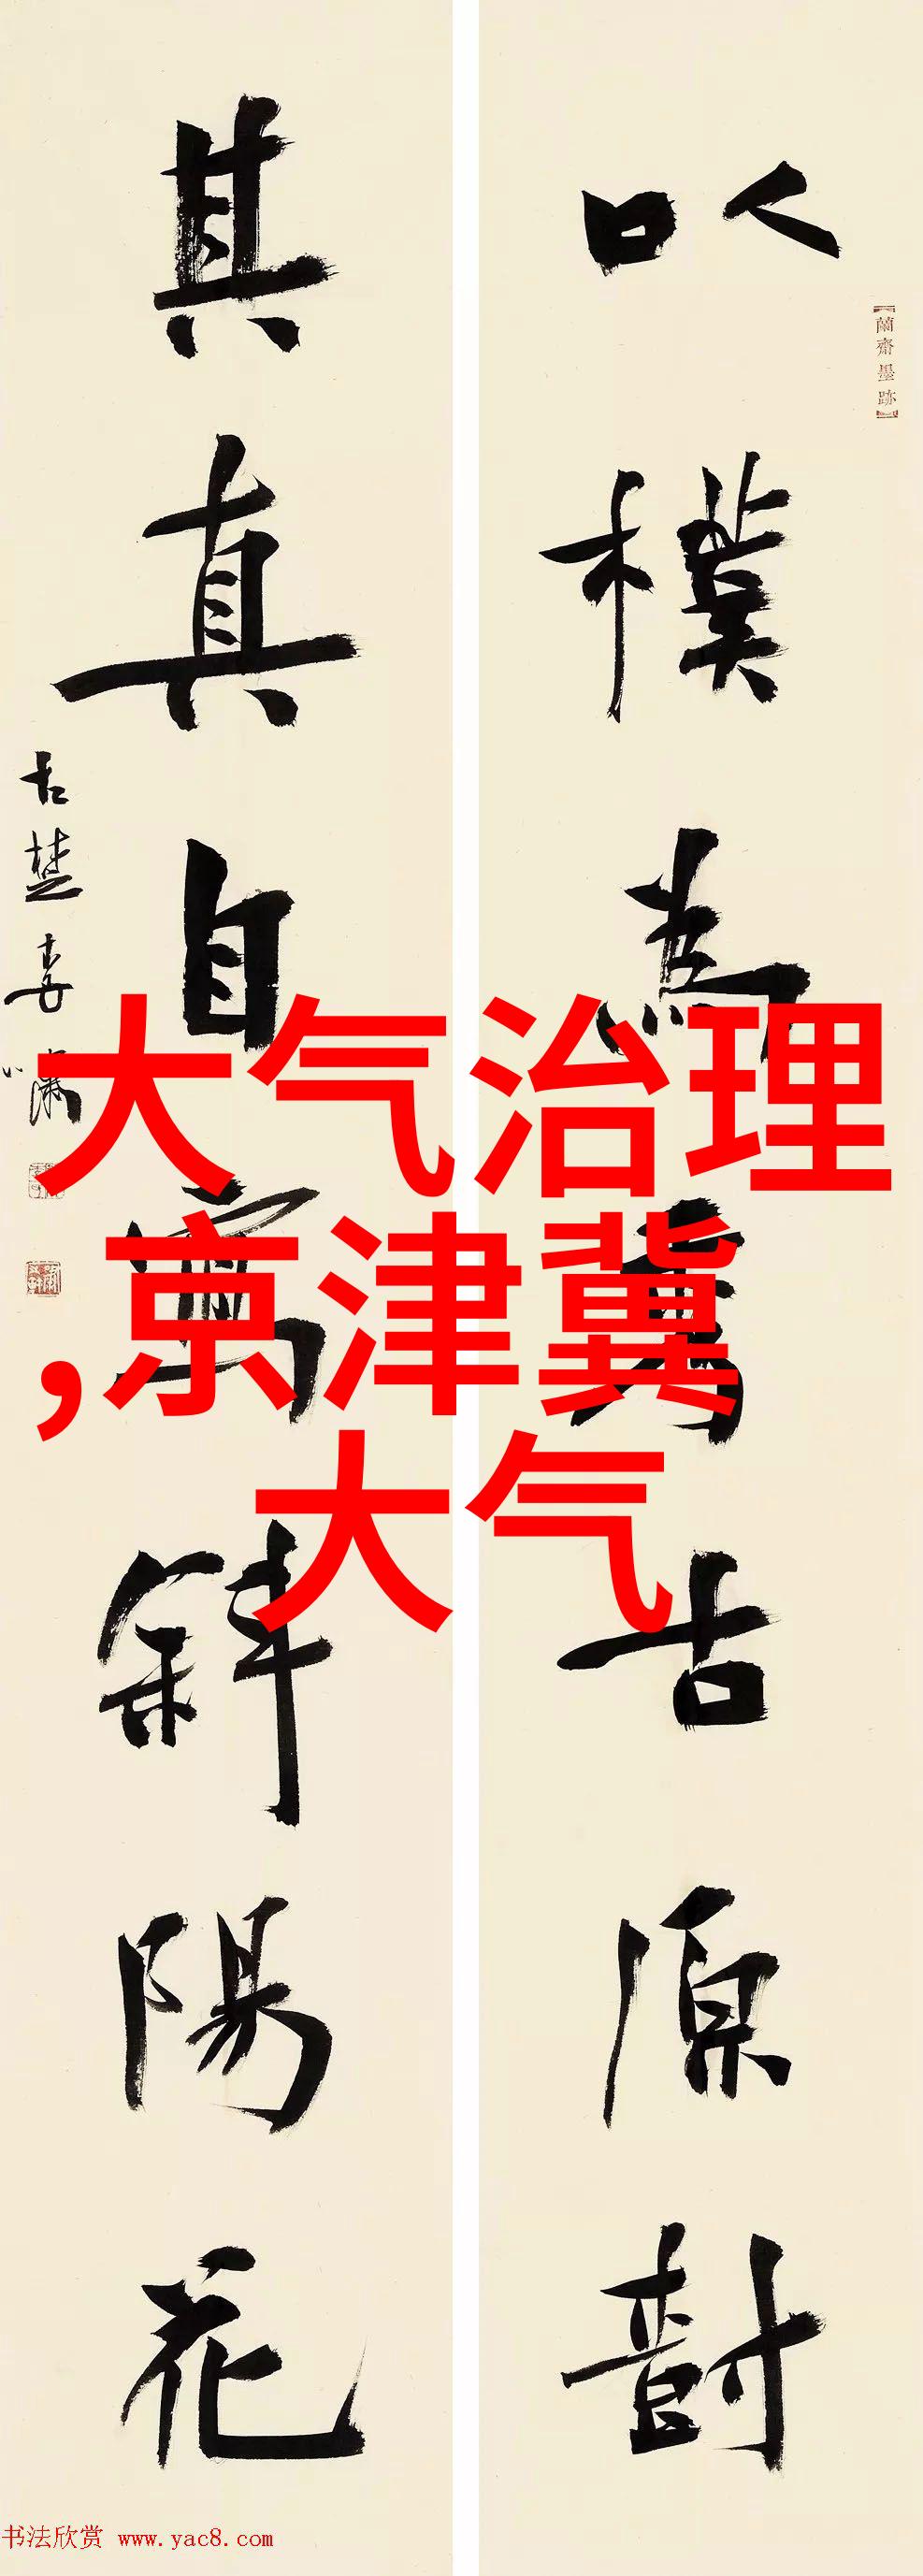 以樸為秀古原樹
【蘭齋墨跡】
其真自寫斜陽花
古楚李
大气治理
,京津冀
大气
书法欣赏 www.yac8.com